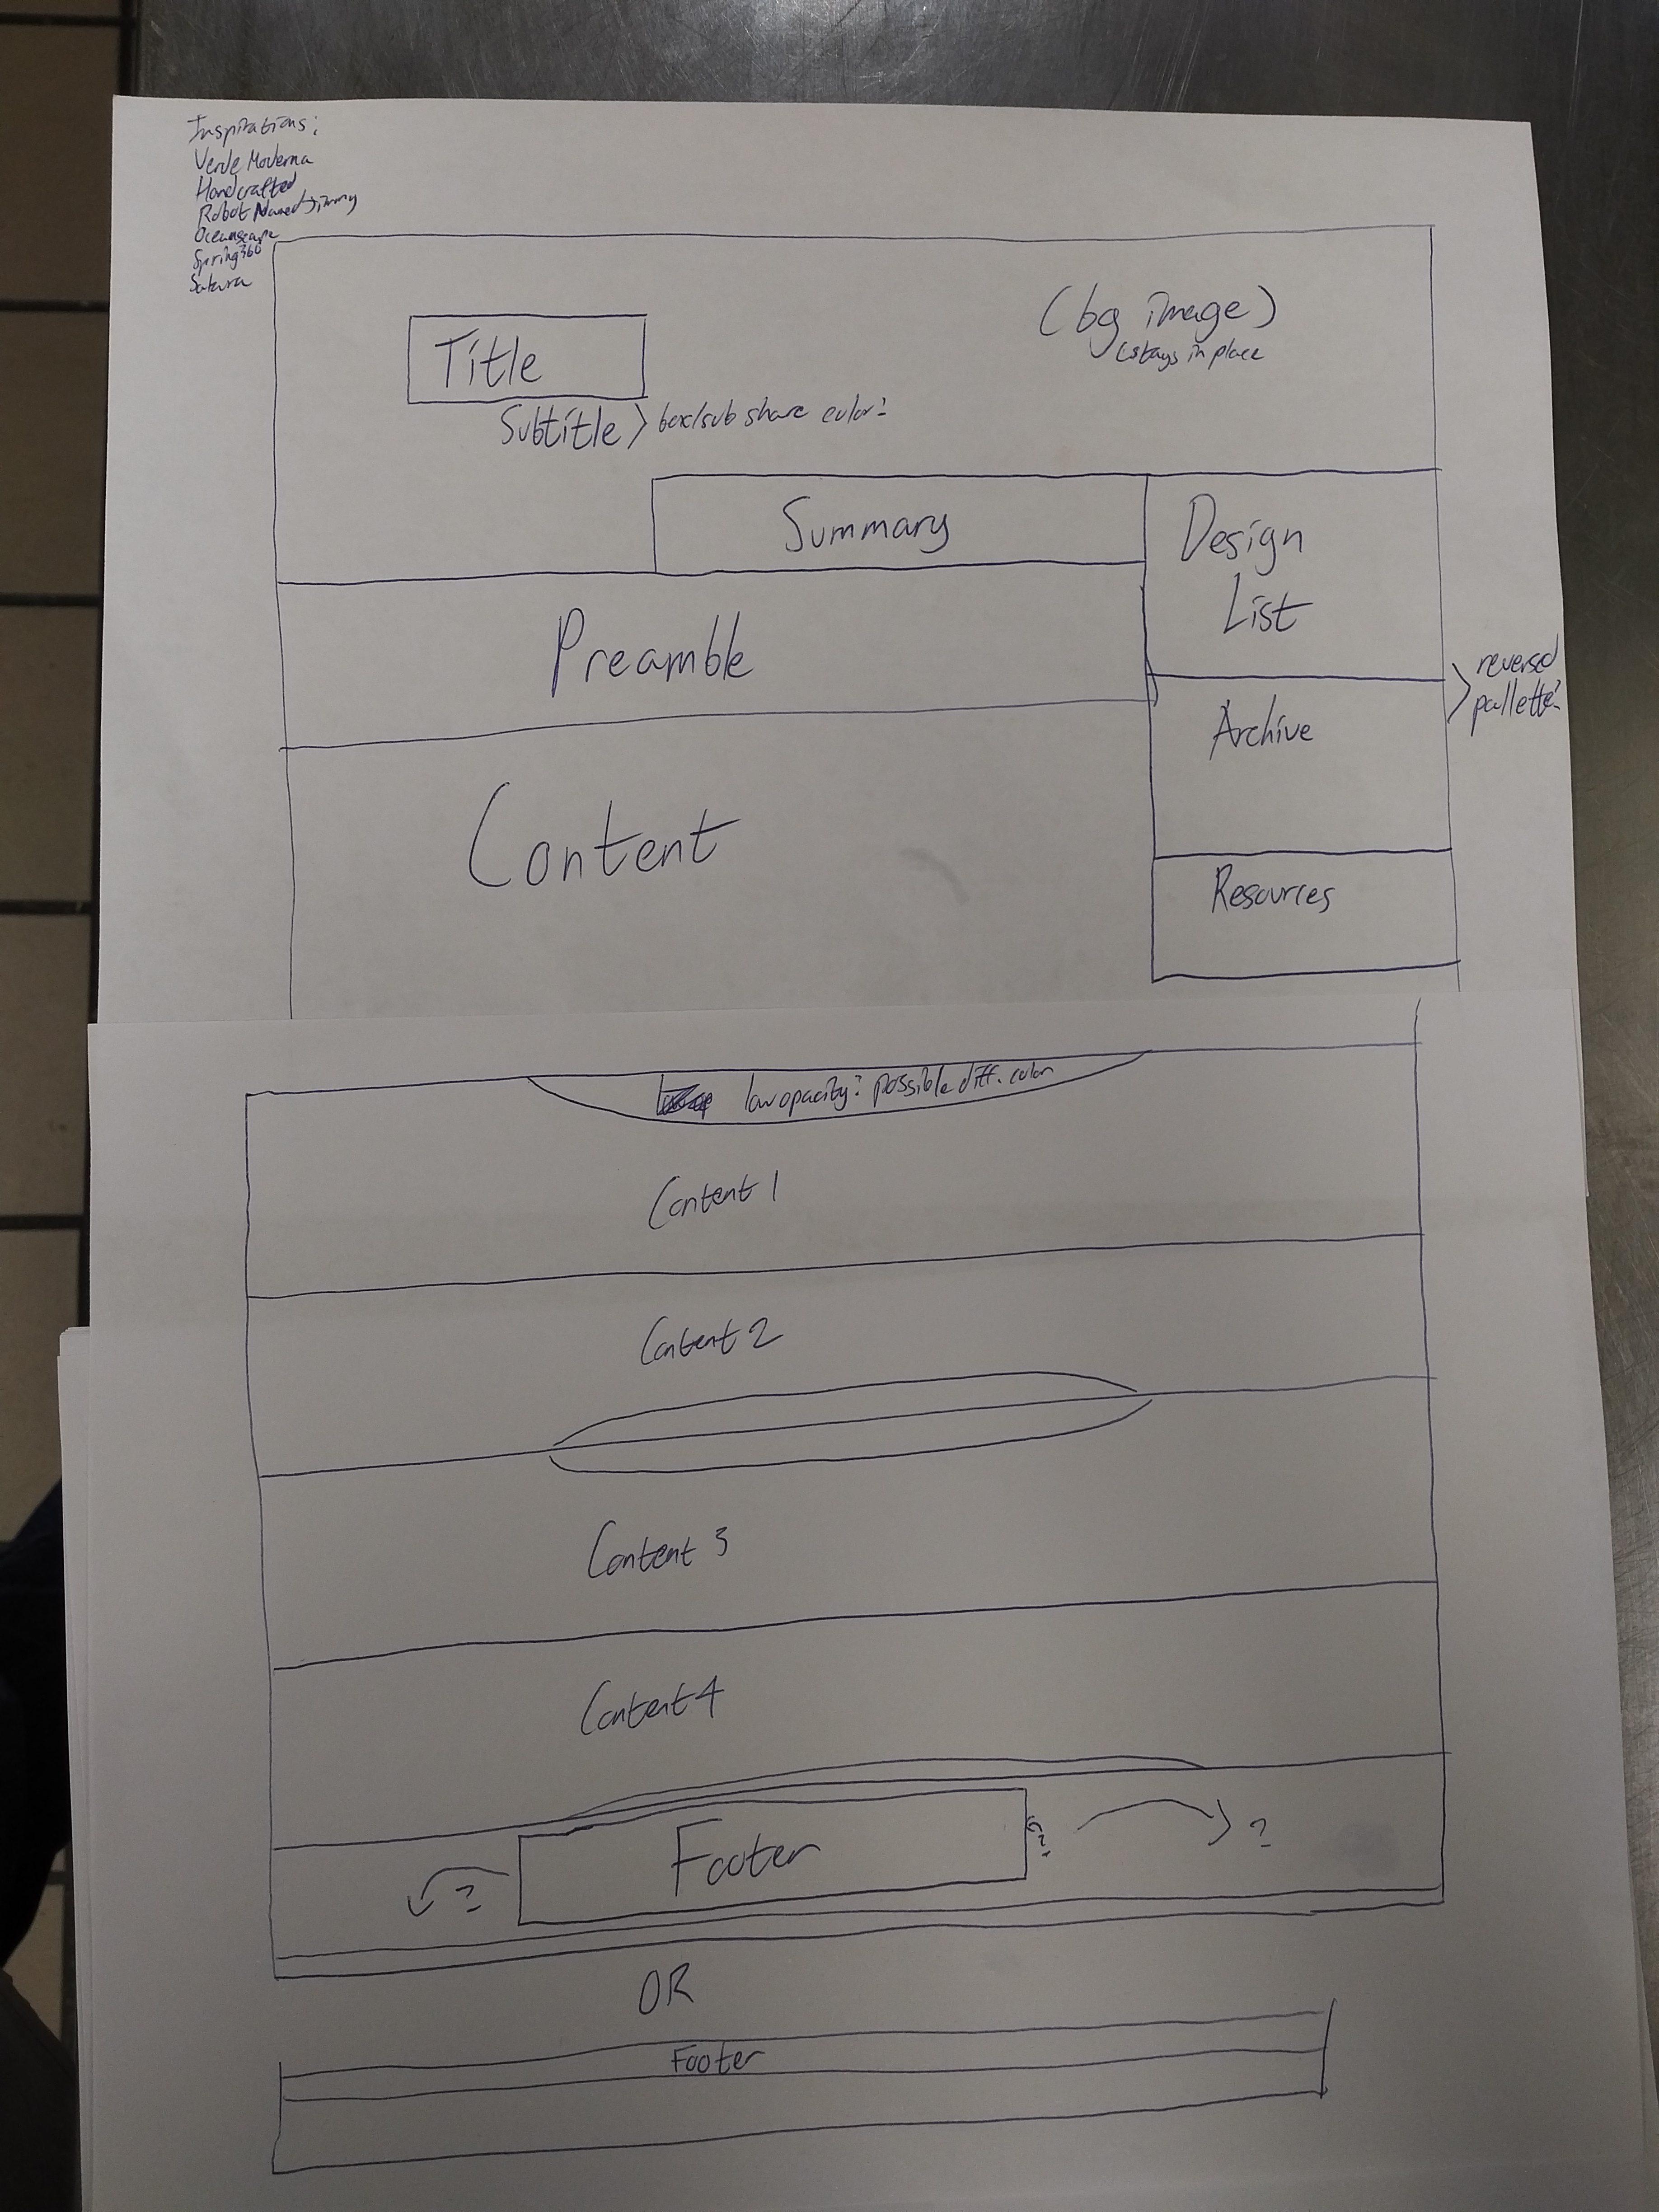 Inspirations:
Verde Moderna
Handcrafted
Robot Named Jimmy
Oceanscape
Spring360
Sakura
(bg image)
stays in place
Title
Subtitle > box/sub share color?
Summary
Design
List
Preamble
reversed
pallette?
Archive
Content
Resources
low opacity? possible diff. color
Content 1
Content 2
Content 3
Content 4
Footer
?
?
?
OR
Footer